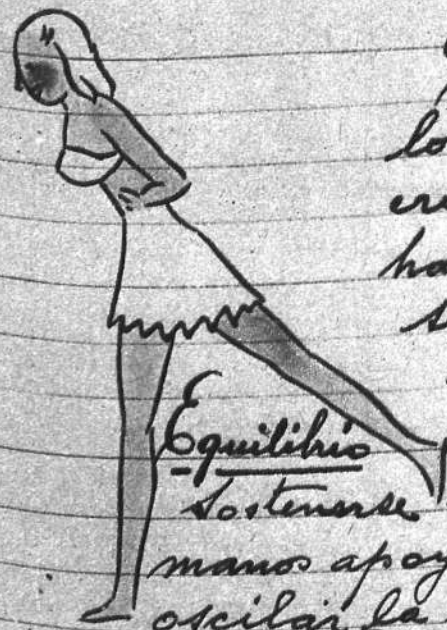 lo
ha
Equilibrio
Sostenerse
manos apoy
oscilar la